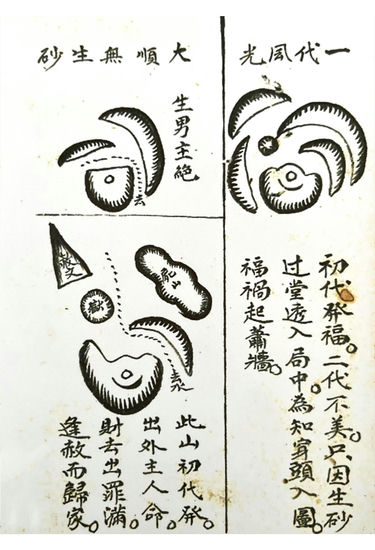 一代凨光
初代發福。二代不美。只因生砂
过堂透入局中。為知穿頭入圖。
福禍起蕭牆。
大順無生砂
生男主絕
去
赦文
獄
去水
此山初代發。
出外主人命。
財去出罪滿。
逢赦而歸家。